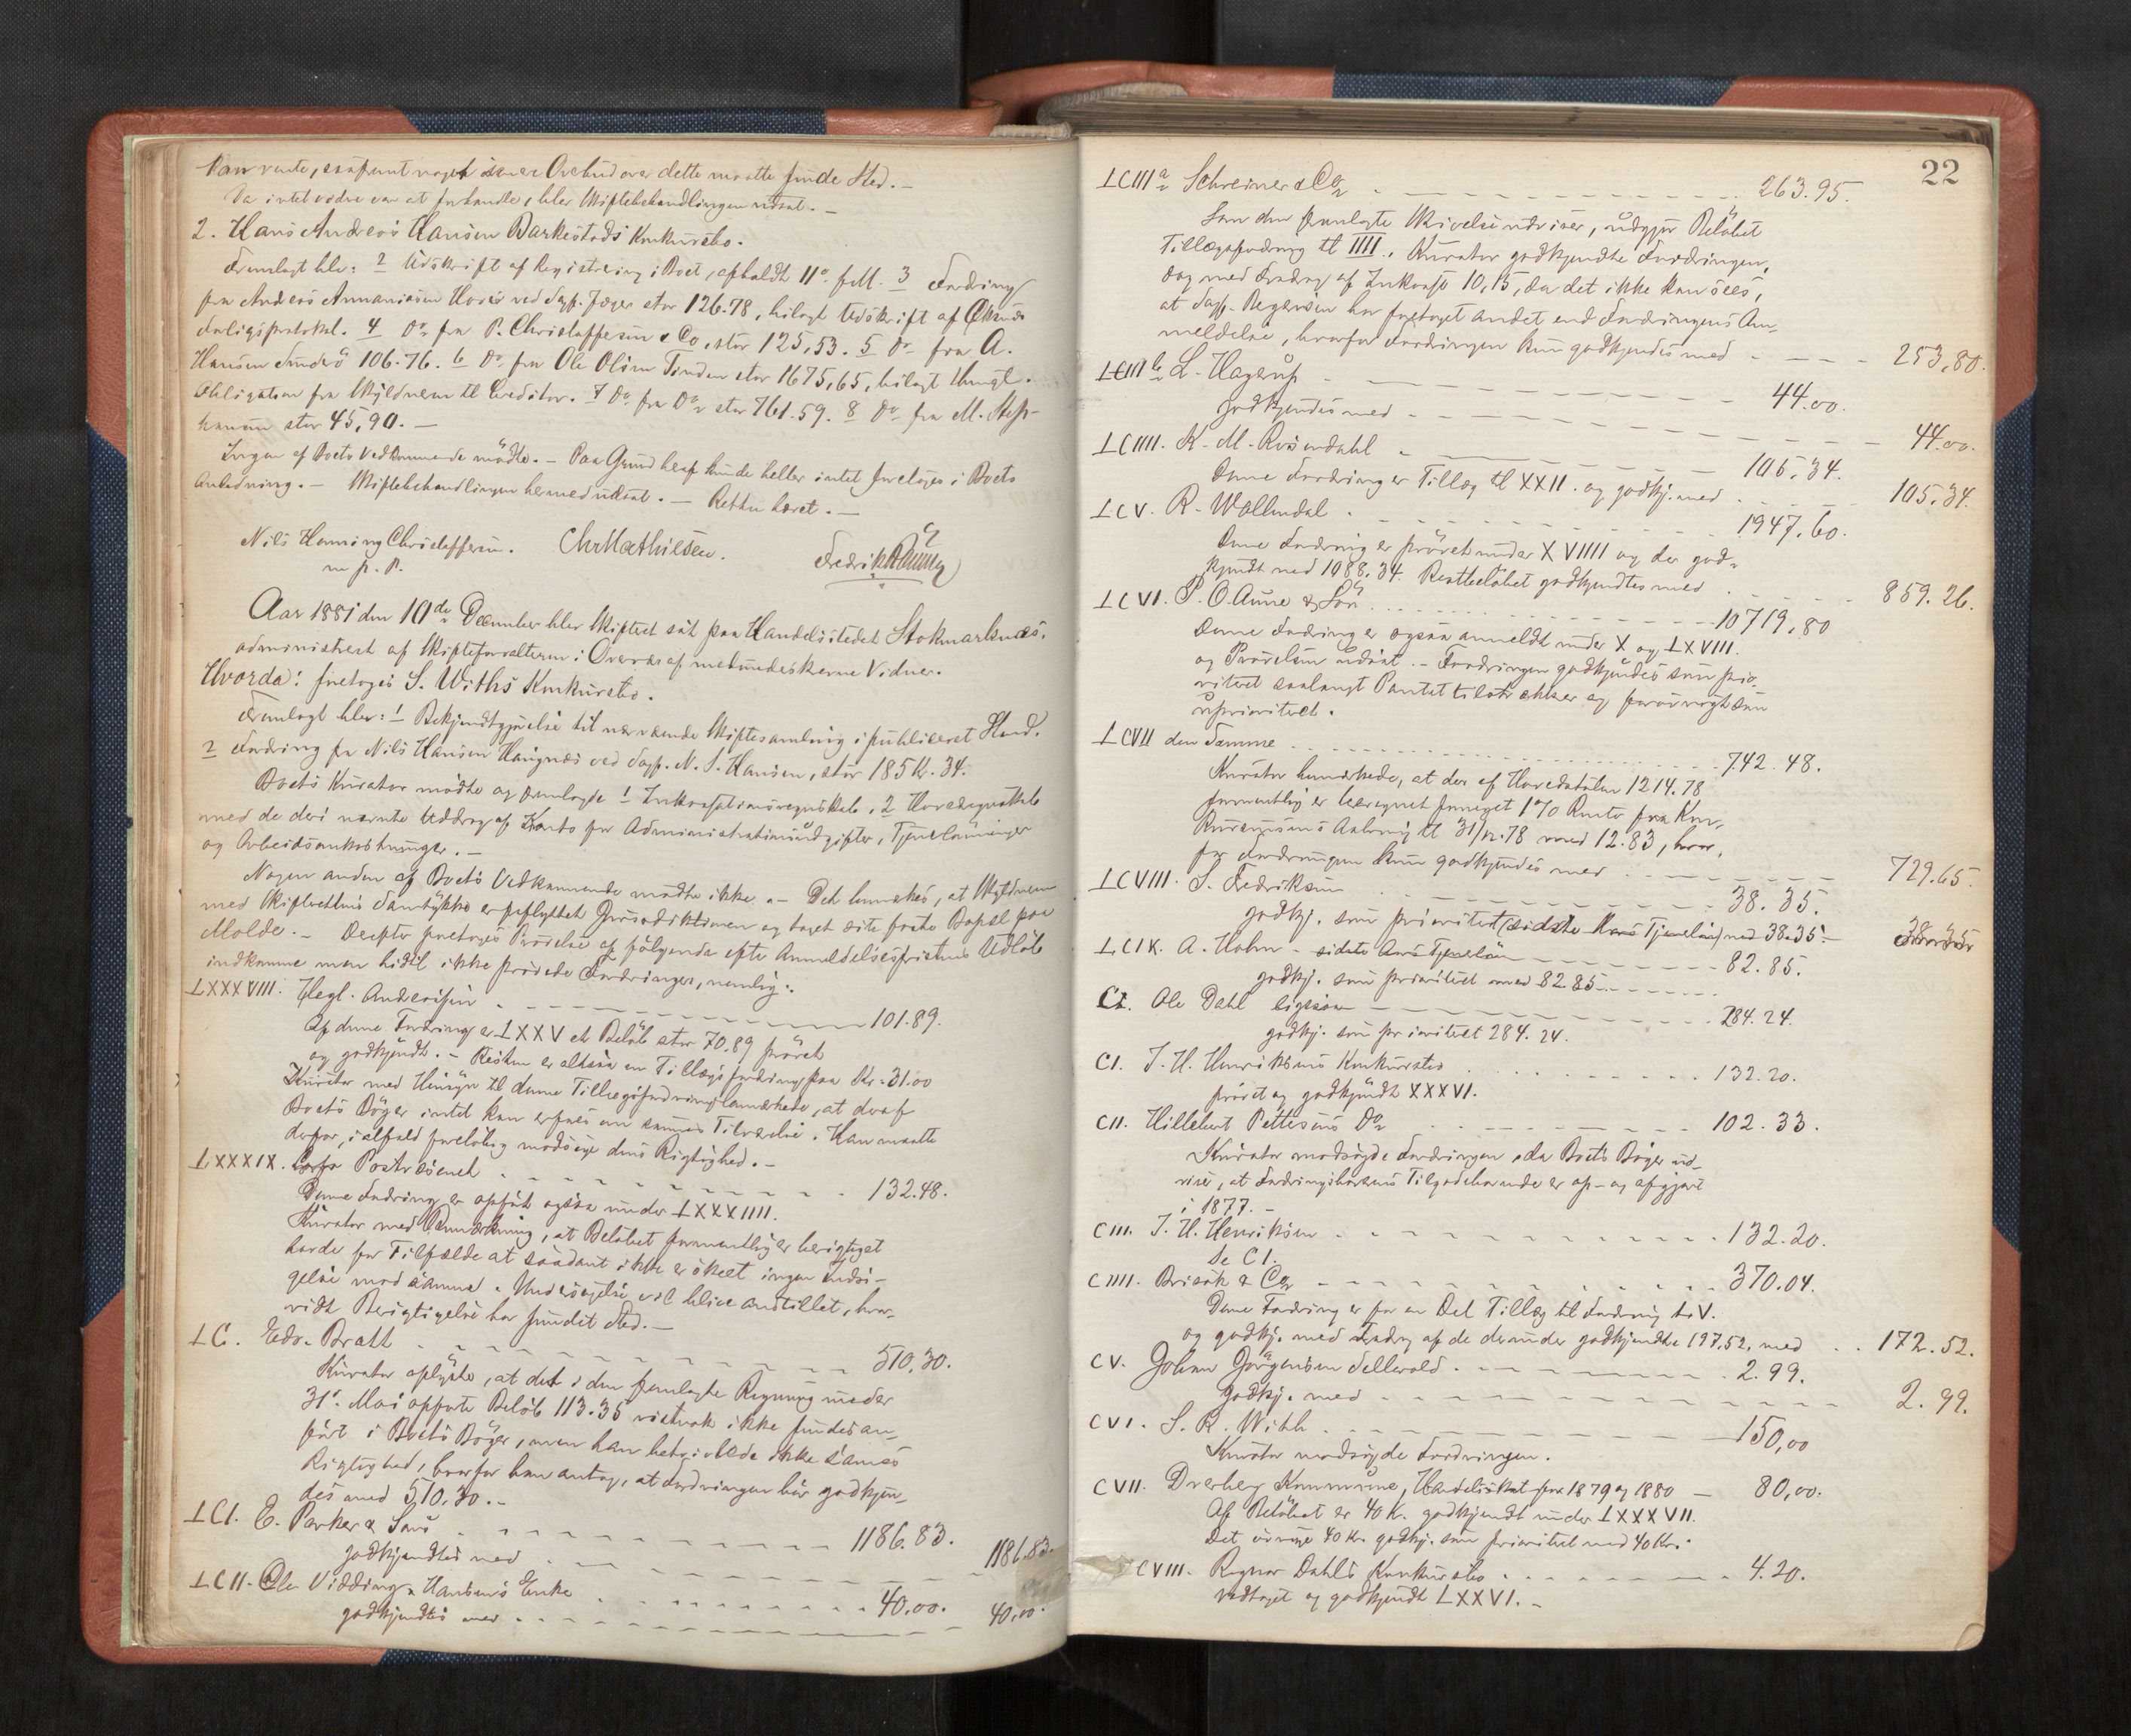 kan vente, saafremt noget Overbud over dette maatte finde Sted. –
Da intet videre var at forhandle, blev Skiftebehandlingen udsat. –
2. Hans Andreas Hansen Barkestads Konkursbo.
Fremlagt blev: 2 Udskrift af Registrering i Boet, afholdt 11te f. M. 3 Fordring
fra Andreas Annaniasen Hovs ved Sagf. Jæger stor 126.78, bilagt Udskrift af
Forligsprotokol. 4 Do fra P. Christoffersen & Co, stor 125,53. 5 Do fra A.
Hansen 106.76. 6 Do fra Ole Olsen Tinden stor 1675,65, bilagt
Obligation fra Skyldneren til Creditor. 7 Do fra Do stor 761.59. 8 Do fra M. Step-
hansen stor 45,90. –
Ingen af Boets Vedkommende mødte. – Paa Grund heraf kunde heller intet foretages i Boets
Anledning. – Skiftebehandlingen hermed udsat. – Retten hævet. –
Nils Henning Christoffersen. Chr Mathiesen. Fredrik
m. p. P.
Aar 1881 den 10de December blev Skifteret sat paa Handelsstedet Stokmarknæs,
administreret af Skifteforvalteren i Overvær af medunderskrevne Vidner.
Hvorda: foretoges S. Withs Konkursbo.
Fremlagt blev: 1 Bekjendtgjørelse til nærværende Skiftesamling i publiceret Stand.
2 Fordring fra Nils Hansen Haugnæs ved Sagf. N. S. Hansen, stor 185 Kr. 34.
Boets Kurator mødte og fremlagde 1 Inkassationsregnskab, 2 Hovedregnskab
med de deri nævnte Uddrag af Konto for Administrationsudgifter, Tjenerlønninger
og Arbeidsomkostninger. –
Nogen anden af Boets Vedkommende mødte ikke. – Det bemærkes, at Skyldneren
med Skifterettens Samtykke er fraflyttet Jurisdiktionen og taget sit faste Bopæl paa
Molde. – Derefter foretoges Prøvelse af følgende efter Anmeldelsesfristens Udløb
indkomne men hidtil ikke prøvede Fordringer, nemlig:
LXXXVIII. Hegl. Anderssen . – – – 101.89.
Af denne Fordring er LXXV et Beløb stor 70.89 prøvet
og godkjendt. – Resten er altsaa en Tillægsfordring paa Kr. 31.00
Kurator med Hensyn til denne Tillægsfordring bemærkede, at deraf
Boets Bøger intet kan erfares om sammes Tilværelse. Han maatte
derfor, i alfald foreløbig modsige dens Rigtighed. –
LXXXIX. Postvæsenet . – – – 132.48.
Denne Fordring er opført ogsaa under LXXXIIII.
Kurator med Bemærkning, at Beløbet formentlig er berigtiget
havde for Tilfælde at saadant ikke er skeet ingen Indsi-
gelse mod samme. Undersøgelse vil blive anstillet, hvor-
vidt Berigtigelse har fundet Sted. –
LC. Edv. Bratt . – – – 510,30.
Kurator oplyste, at det i den fremlagte Regning under
31te Mai opførte Beløb 113.35 vistnok ikke findes an-
ført i Boets Bøger, men han betvivlede ikke sammes
Rigtighed, hvorfor han antog, at Fordringen bør godkjen-
des med 510,30. –
LCI. E. Parker & Søns . – – – 1186.83.
godkjendtes med . – – – 1186.83.
LCII. Ole Vidding Hansens Enke . – – – 40,00.
godkjendtes med . – – – 40,00.
22
LCIII a Schreiner & Co . – – – 263.95.
Som den fremlagte Skrivelse udviser, udgjør Beløbet
Tillægsfordring til IIII. Kurator godkjendte Fordringen,
dog med Fradrag af Inkasso 10,15, da det ikke kan sees,
at Sagf. har foretaget andet end Fordringens An-
meldelse, hvorfor Fordringen kun godkjendes med . – – – 253,80.
LCIII b L. Hagerup – – – 44.00.
godkjendes med . – – – 44.00.
LCIIII. K. M. Rosendahl . – – – 105.34.
Denne Fordring er Tillæg til XXII. og godkj. med . – – – 105.34.
LCV. R. Wollendal . – – – 1947.60.
Denne Fordring er prøvet under XVIIII og der god-
kjendt med 1088.34. Restbeløbet godkjendtes med . – – – 859.26.
LCVI. P. O. Aune & Søn . – – – 10719,80
Denne Fordring er ogsaa anmeldt under X og LXVIII.
og Prøvelsen udsat. – Fordringen godkjendes som prio-
riteret saalangt Pantet tilstrækker og forøvrigt som
uprioriteret.
LCVII den Samme . . . 742.48.
Kurator bemærkede, at der af Hovedstolen 1214.78
formentlig er beregnet formeget 1% Rente fra Kon-
kursens Aabning til 31/12.78 med 12.83, hvor-
for Fordringen kun godkjendes med . – – – 729.65.
LCVIII. S. Fredriksen . – – – 38.35.
godkj. som prioritet (sidste Aars Tjenerløn) med 38.35. –
LCIX. A. Hahn – sidste Aars Tjenerløn – – – 82.85.
godkj. som prioriteret med 82.85. – – –
C. Ole Dahl ligesaa – – – 284.24.
godkj. som prioriteret 284.24.
CI. J. H. Henriksens Konkursbo . . . 132.20.
prøvet og godkjendt XXXVI.
CII. Hillebert Pettersens Do . – – – 102.33.
Kurator modsagde Fordringen, da Boets Bøger ud-
viser, at Fordringshaverens Tilgodehavende er op- og afgjort
i 1877. –
CIII. J. H. Henriksen . – – – 132.20.
Se CI.
CIIII. Brisök & Co – – – 370.04.
Denne Fordring er for en Del Tillæg til Fordring LV.
og godkj. med Fradrag af de derunder godkjendte 197,52, med . . 172.52.
CV. Johan Jørgensen Sellevold . – – – 2.99.
godkj. med – – – 2.99.
CVI. S. R. With . – – – 150,00
Kurator modsagde Fordringen.
CVII. Dverberg Kommune, Handelsskat for 1879 og 1880 – 80,00.
Af Beløbet er 40 K. godkjendt under LXXXVII.
Det øvrige 40 Kr. godkj. som prioritet med 40 Kr.
CVIII. Ragnar Dahls Konkursbo . . . 4.20.
vedtaget og godkjendt LXXVI. –